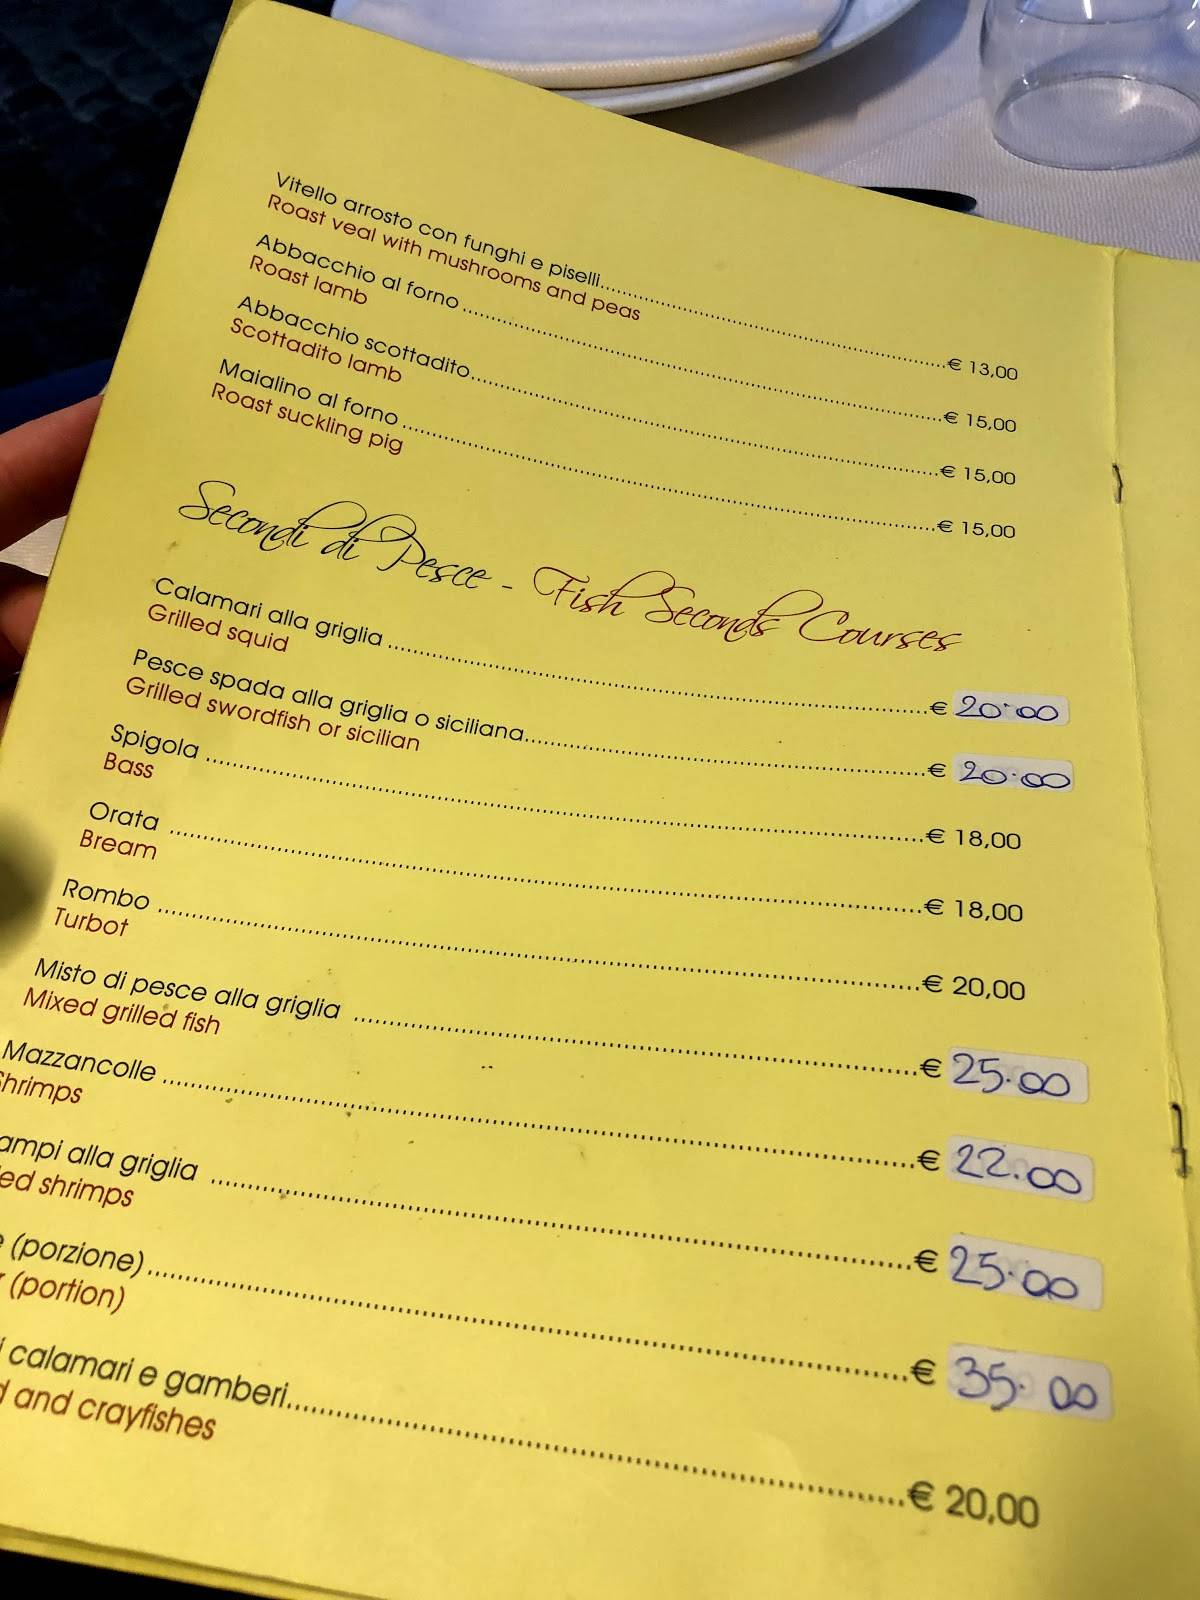 Vitello arrosto con funghi e piselli........€ 13,00
Roast veal with mushrooms and peas
Abbacchio al forno........€ 15,00
Roast lamb
Abbacchio scottadito........€ 15,00
Scottadito lamb
Maialino al forno........€ 15,00
Roast suckling pig
Secondi di Pesce - Fish Seconds Courses
Calamari alla griglia........€ 20.00
Grilled squid
Pesce spada alla griglia o siciliana........€ 20.00
Grilled swordfish or sicilian
Spigola........€ 18,00
Bass
Orata........€ 18,00
Bream
Rombo........€ 20,00
Turbot
Misto di pesce alla griglia........€ 25.00
Mixed grilled fish
Mazzancolle........€ 22.00
Shrimps
ampi alla griglia........€ 25.00
ed shrimps
(porzione)........€ 35.00
(portion)
calamari e gamberi........€ 20,00
and crayfishes